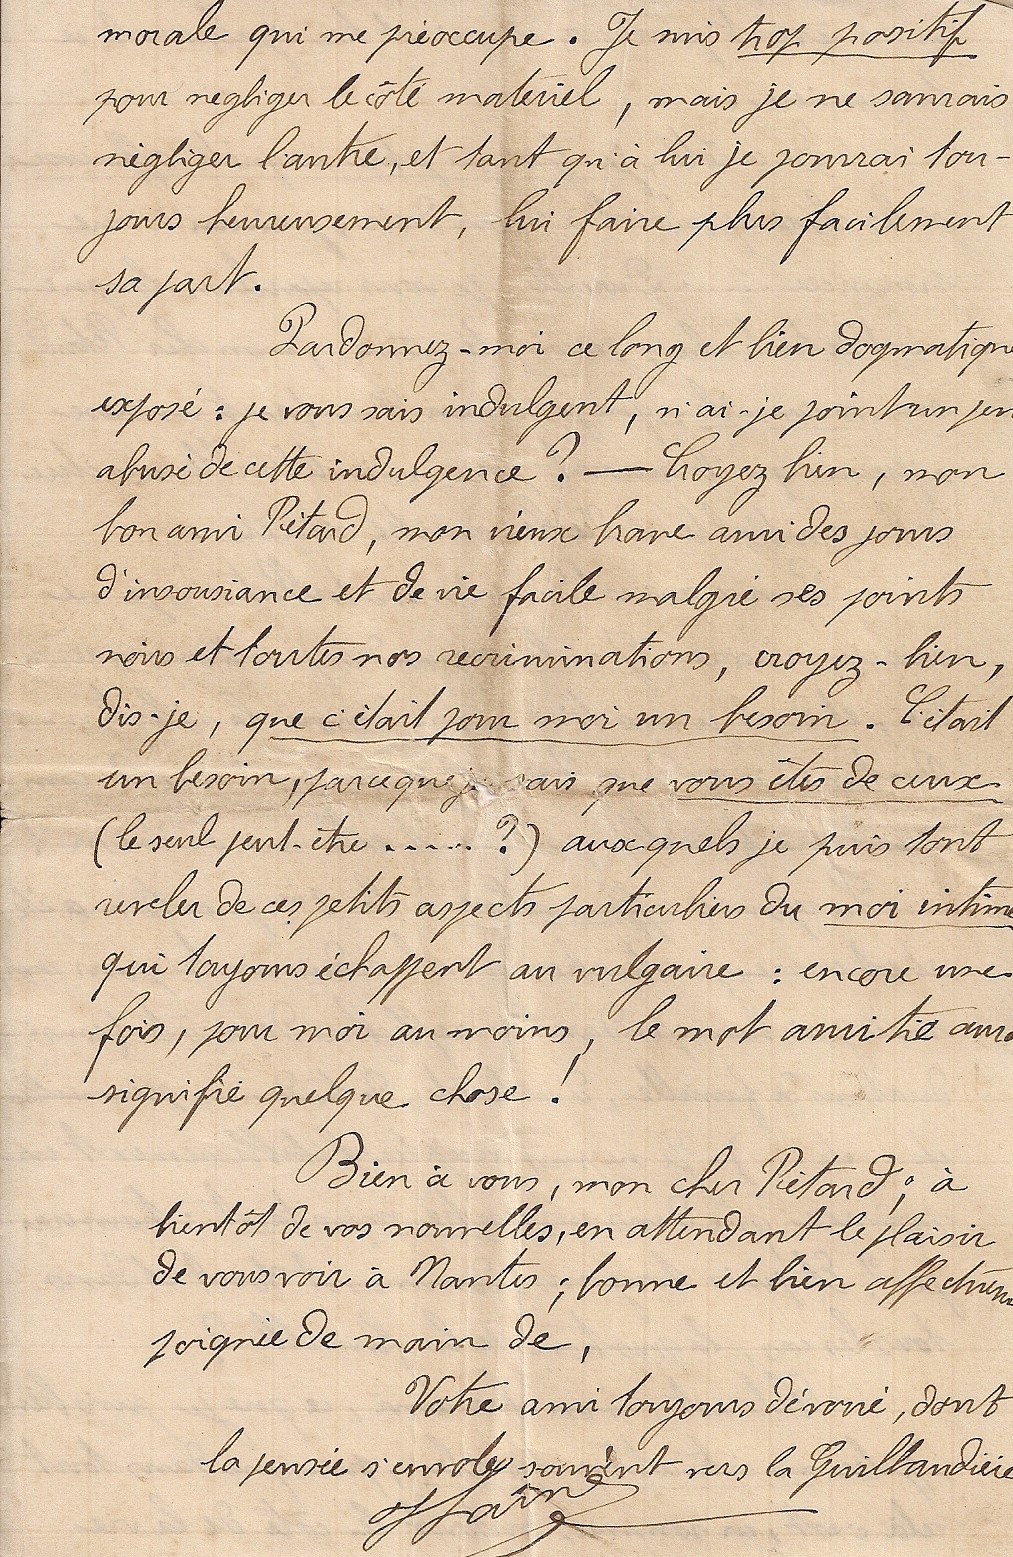 morale qui me préoccupe. Je suis trop positif
pour négliger le côté matériel, mais je ne saurais
négliger l'autre, et tant qu'à lui je pourrai tou-
jours heureusement, lui faire plus facilement
sa part.
Pardonnez-moi ce long et bien dogmatique
exposé : je vous sais indulgent, n'ai-je point un peu
abusé de cette indulgence ? — Croyez bien, mon
bon ami Rétard, mon vieux brave ami des jours
d'insousiance et de vie facile malgré ses points
noirs et toutes nos récriminations, croyez-bien,
dis-je, que c'était pour moi un besoin. C'était
un besoin, parceque je sais que vous êtes de ceux
(le seul peut-être ..... ?) aux-quels je puis tout
révéler de ces petits aspects particuliers du moi intime
qui toujours échappent au vulgaire : encore une
fois, pour moi au moins, le mot amitié aura
signifié quelque chose !
Bien à vous, mon cher Rétard ; à
bientôt de vos nouvelles, en attendant le plaisir
de vous voir à Nantes ; bonne et bien affectueuse
poignée de main de,
Votre ami toujours dévoué, dont
la pensée s'envole souvent vers la Guillaudière